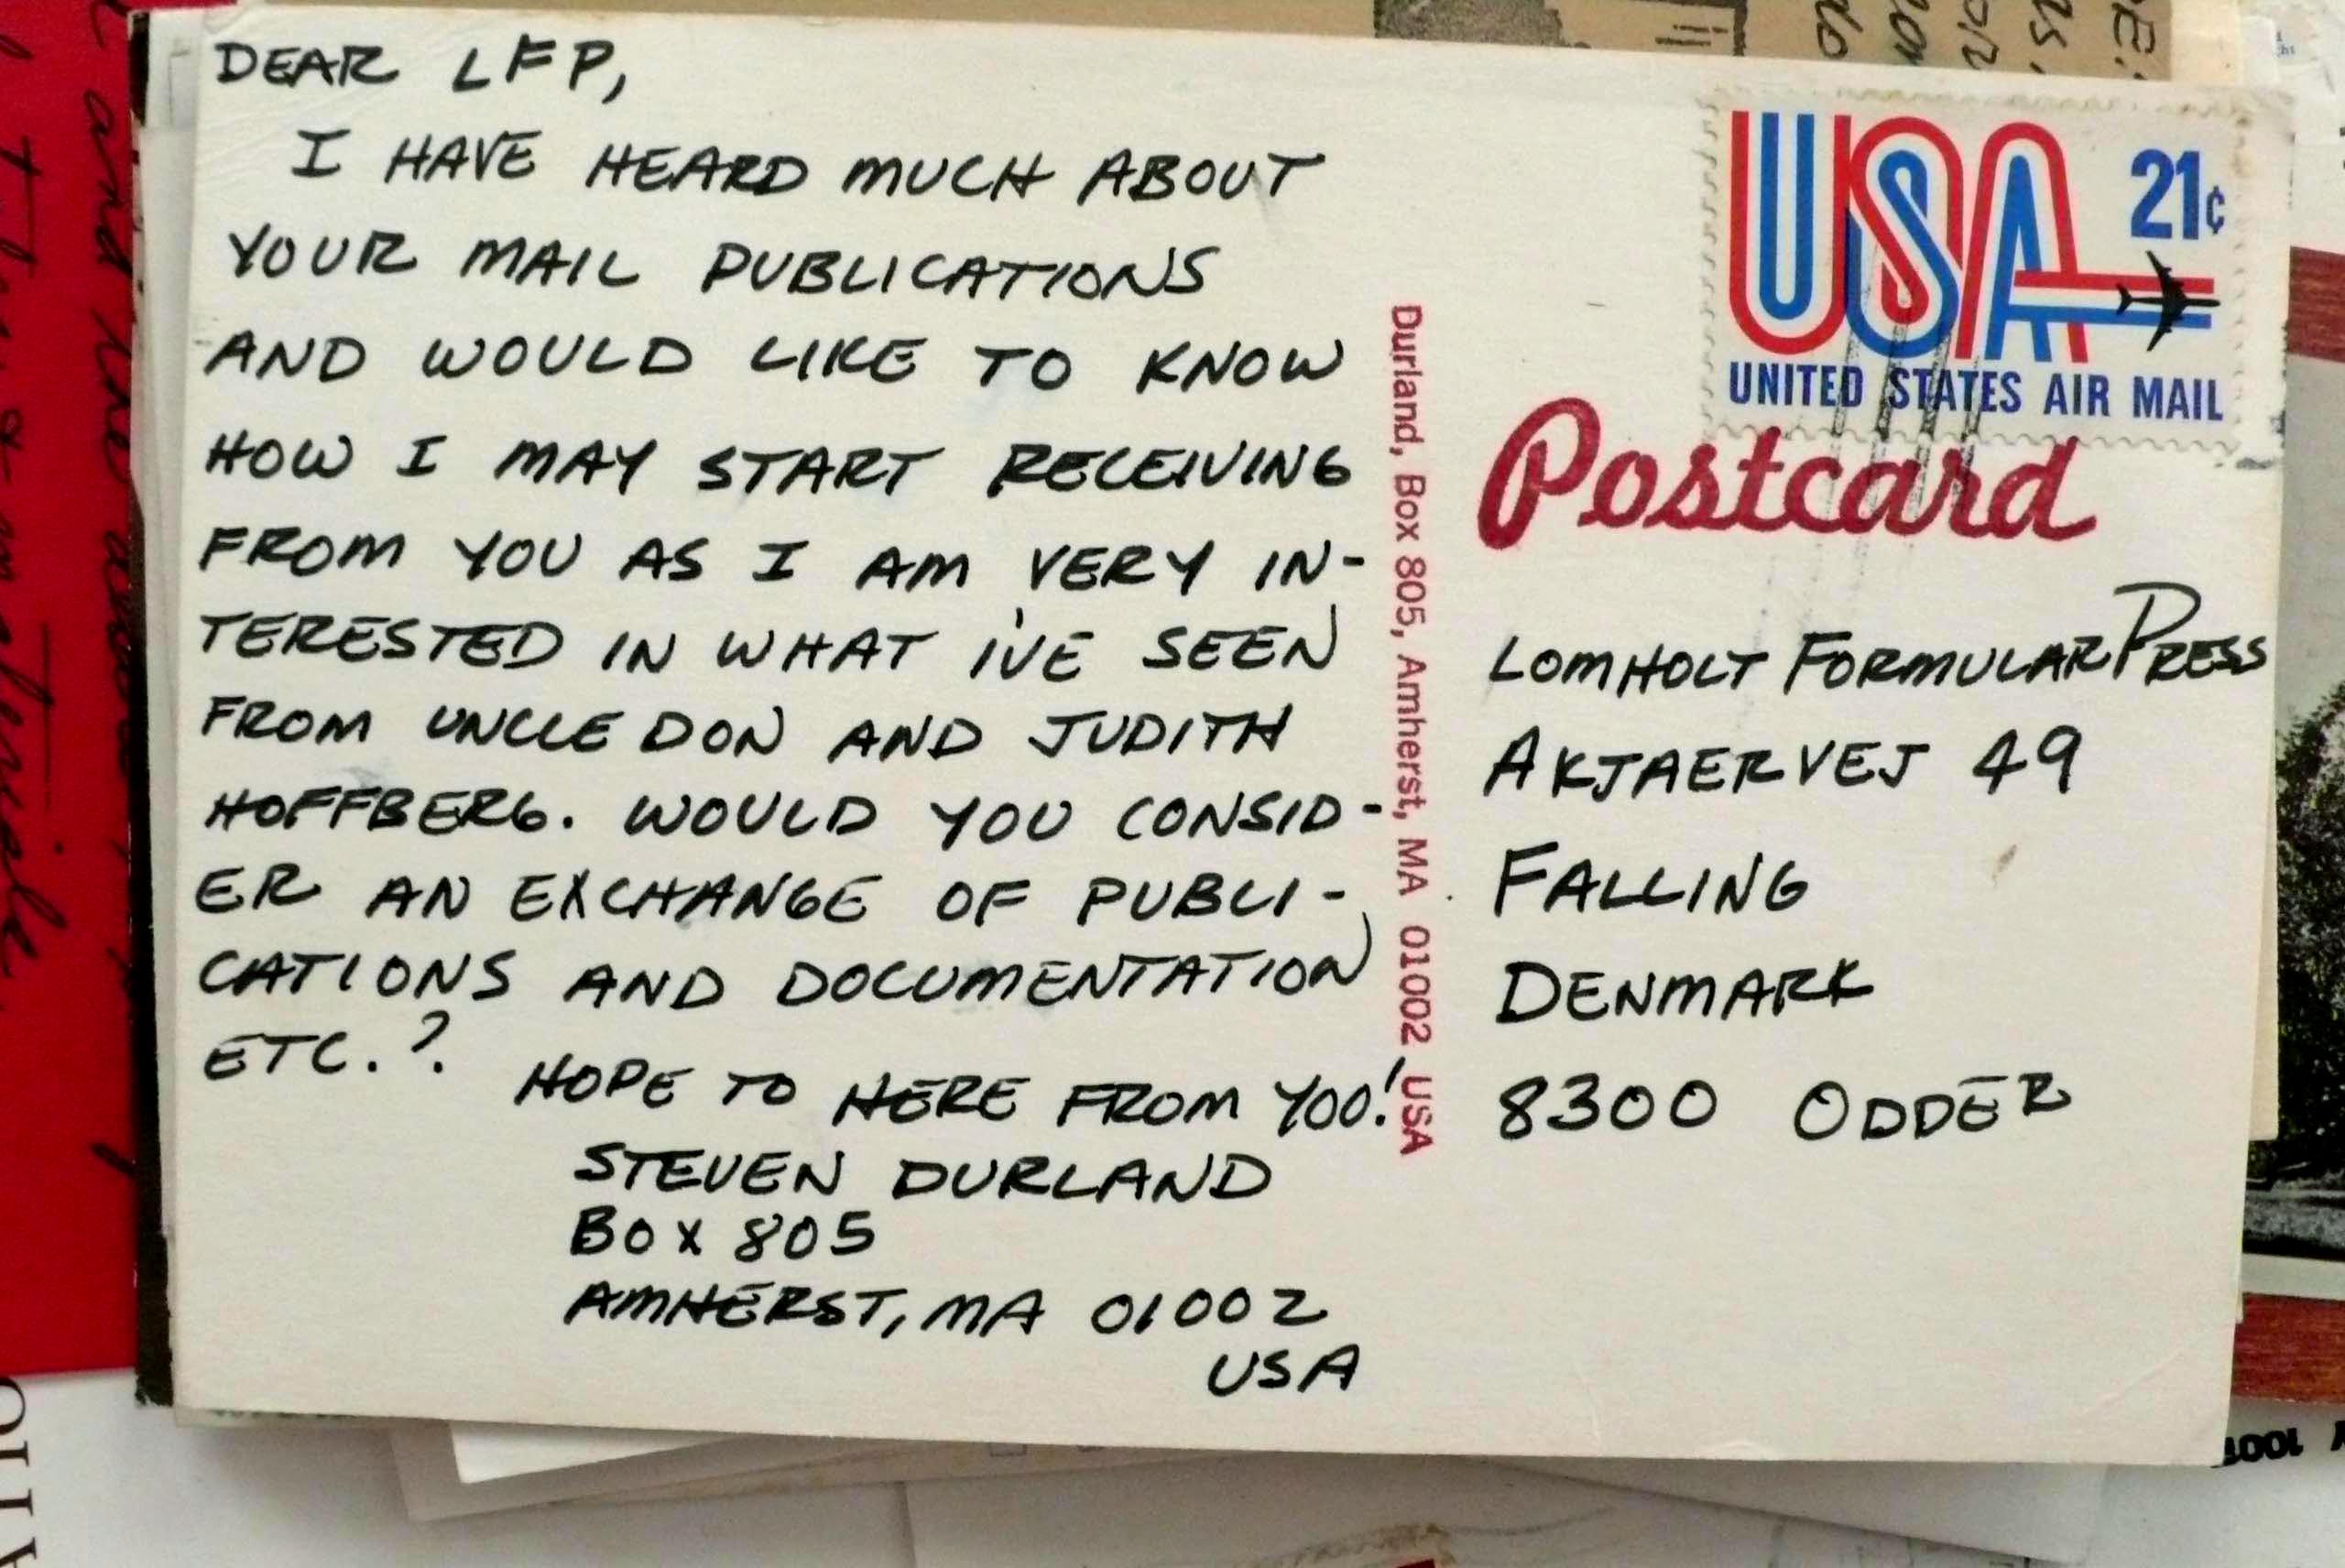 DEAR LFP,
I HAVE HEARD MUCH ABOUT
YOUR MAIL PUBLICATIONS
AND WOULD LIKE TO KNOW
HOW I MAY START RECEIVING
FROM YOU AS I AM VERY IN-
TERESTED IN WHAT I'VE SEEN
FROM UNCLE DON AND JUDITH
HOFFBERG. WOULD YOU CONSID-
ER AN EXCHANGE OF PUBLI-
CATIONS AND DOCUMENTATION
ETC.?
HOPE TO HERE FROM YOU!
STEVEN DURLAND
BOX 805
AMHERST, MA 01002
USA
Durland, Box 805, Amherst, MA 01002 USA
USA 21¢
UNITED STATES AIR MAIL
Postcard
LOMHOLT FORMULAR PRESS
AKJAERVEJ 49
FALLING
DENMARK
8300 ODDER